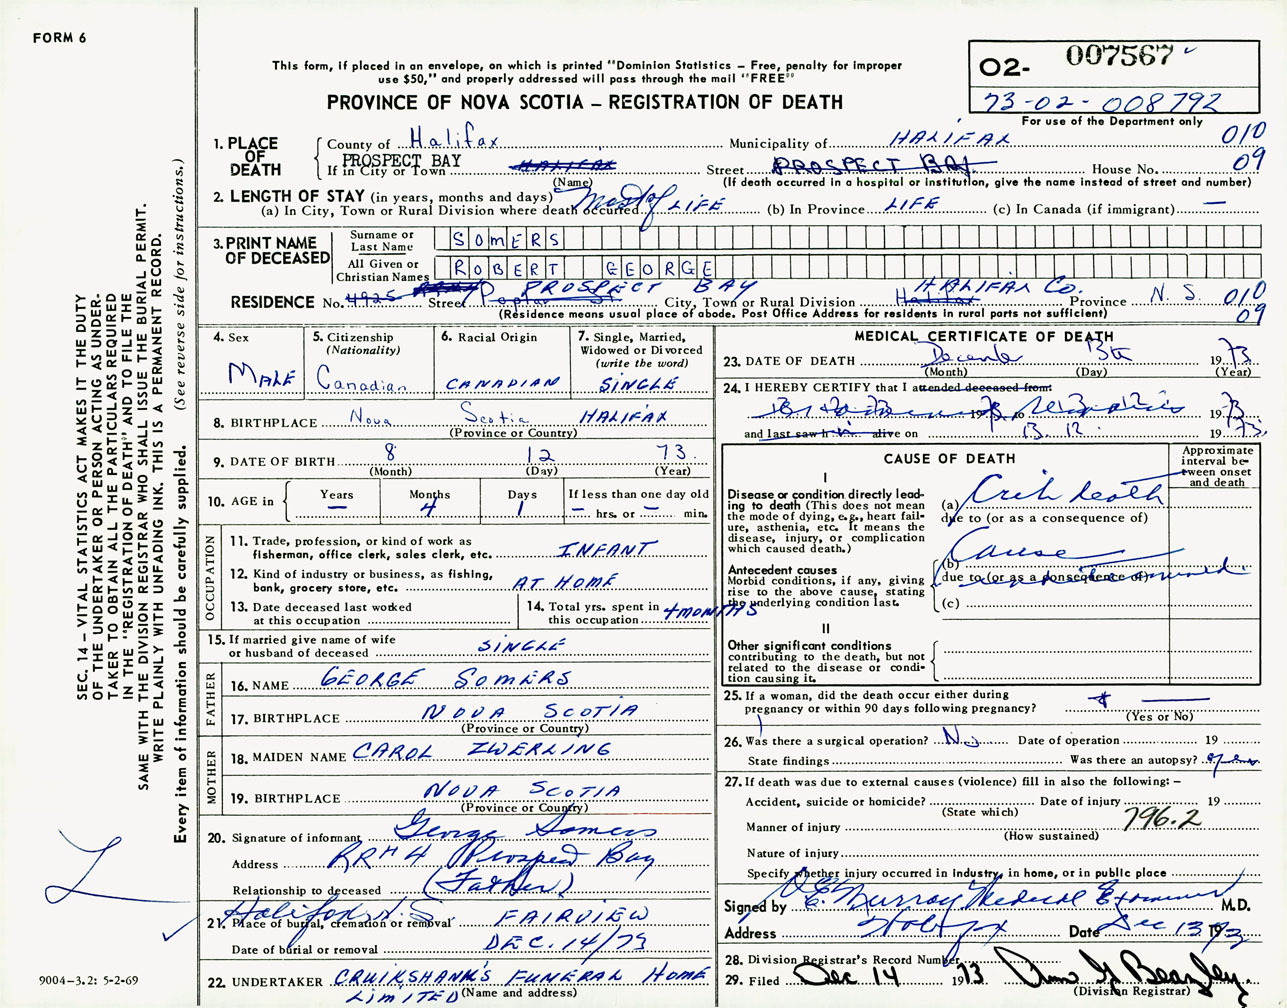 FORM 6
This form, if placed in an envelope, on which is printed "Dominion Statistics – Free, penalty for improper
use $50," and properly addressed will pass through the mail "FREE"
PROVINCE OF NOVA SCOTIA – REGISTRATION OF DEATH
O2- 007567
73-02-008792
For use of the Department only
1. PLACE OF DEATH
County of Halifax Municipality of HALIFAX 010
If in City or Town PROSPECT BAY HALIFAX Street PROSPECT BAY House No. 09
(Name) (If death occurred in a hospital or institution, give the name instead of street and number)
2. LENGTH OF STAY (in years, months and days)
(a) In City, Town or Rural Division where death occurred Most of LIFE (b) In Province LIFE (c) In Canada (if immigrant) —
3. PRINT NAME OF DECEASED
Surname or Last Name SOMERS
All Given or Christian Names ROBERT GEORGE
RESIDENCE No. 4925 Street PROSPECT BAY City, Town or Rural Division Halifax HALIFAX Co. Province N.S. 010
(Residence means usual place of abode. Post Office Address for residents in rural parts not sufficient) 09
4. Sex
MALE
5. Citizenship
(Nationality)
Canadian
6. Racial Origin
CANADIAN
7. Single, Married,
Widowed or Divorced
(write the word)
SINGLE
8. BIRTHPLACE Nova Scotia HALIFAX
(Province or Country)
9. DATE OF BIRTH 8 12 73
(Month) (Day) (Year)
10. AGE in
Years Months Days If less than one day old
— 4 1 — hrs. or — min.
OCCUPATION
11. Trade, profession, or kind of work as
fisherman, office clerk, sales clerk, etc. INFANT
12. Kind of industry or business, as fishing,
bank, grocery store, etc. AT HOME
13. Date deceased last worked
at this occupation
14. Total yrs. spent in
this occupation 4 MONTHS
15. If married give name of wife
or husband of deceased SINGLE
FATHER
16. NAME GEORGE SOMERS
17. BIRTHPLACE NOVA SCOTIA
(Province or Country)
MOTHER
18. MAIDEN NAME CAROL ZWERLING
19. BIRTHPLACE NOVA SCOTIA
(Province or Country)
20. Signature of informant George Somers
Address RR#4 Prospect Bay
Relationship to deceased (Father)
21. Place of burial, cremation or removal Halifax N.S FAIRVIEW
Date of burial or removal DEC. 14/73
22. UNDERTAKER CRUIKSHANK'S FUNERAL HOME
LIMITED (Name and address)
MEDICAL CERTIFICATE OF DEATH
23. DATE OF DEATH December 13th 1973
(Month) (Day) (Year)
24. I HEREBY CERTIFY that I attended deceased from:
19 73 to 1973
and last saw h im alive on 13. 12. 1973
CAUSE OF DEATH
Approximate
interval be-
tween onset
and death
I
Disease or condition directly lead-
ing to death (This does not mean
the mode of dying, e.g., heart fail-
ure, asthenia, etc. It means the
disease, injury, or complication
which caused death.)
(a) Crib death
due to (or as a consequence of)
Antecedent causes
Morbid conditions, if any, giving
rise to the above cause, stating
the underlying condition last.
(b) Cause
due to (or as a consequence of)
(c)
II
Other significant conditions
contributing to the death, but not
related to the disease or condi-
tion causing it.
25. If a woman, did the death occur either during
pregnancy or within 90 days following pregnancy?
(Yes or No)
26. Was there a surgical operation? No Date of operation 19
State findings Was there an autopsy? yes
27. If death was due to external causes (violence) fill in also the following: –
Accident, suicide or homicide? Date of injury 19
(State which)
Manner of injury 796.2
(How sustained)
Nature of injury
Specify whether injury occurred in industry, in home, or in public place
Signed by Murray Medical Examiner M.D.
Address Halifax Date Dec 13 1973
28. Division Registrar's Record Number
29. Filed Dec 14 1973
(Division Registrar)
SEC. 14 – VITAL STATISTICS ACT MAKES IT THE DUTY
OF THE UNDERTAKER OR PERSON ACTING AS UNDER-
TAKER TO OBTAIN ALL THE PARTICULARS REQUIRED
IN THE "REGISTRATION OF DEATH" AND TO FILE THE
SAME WITH THE DIVISION REGISTRAR WHO SHALL ISSUE THE BURIAL PERMIT.
WRITE PLAINLY WITH UNFADING INK. THIS IS A PERMANENT RECORD.
Every item of information should be carefully supplied. (See reverse side for instructions.)
9004–3.2: 5-2-69